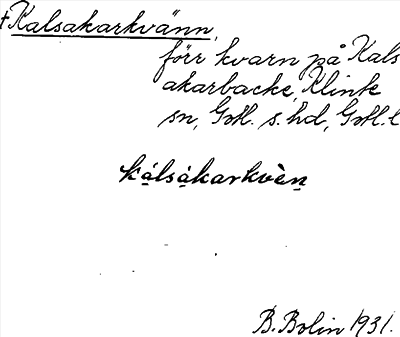 †Kalsakarkvänn,
förr kvarn på Kals
akarbacke, Klinte
sn, Gotl. s. hd, Gotl. l
kalsakarkvèn
B. Bolin 1931.